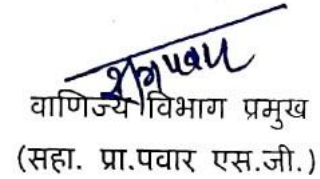 वाणिज्य विभाग प्रमुख
(सहा. प्रा.पवार एस.जी.)